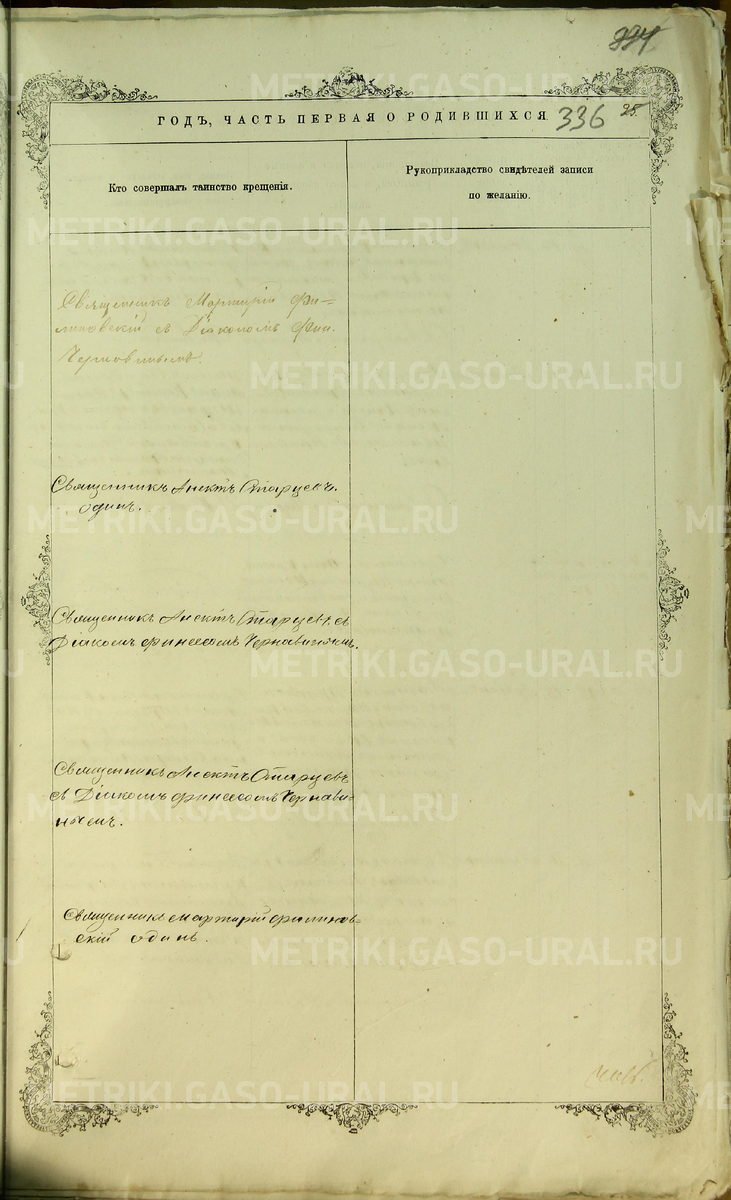 336 25.
ГОДЪ, ЧАСТЬ ПЕРВАЯ О РОДИВШИХСЯ
Кто совершалъ таинство крещенія.
Рукоприкладство свидѣтелей записи
по желанію.
Священникъ Мартирій Фи=
липовскій съ Діакономъ Фин.
Священникъ Анектъ Старцевъ.
одинъ.
Священникъ Анектъ Старцевъ съ
Діакомъ Финеесомъ Чернавинымъ.
Священникъ Анектъ Старцевъ
съ Діакомъ Финеесомъ Чернави=
нымъ.
Священникъ Мартирій Филипов=
скій одинъ.
METRIKI.GASO-URAL.RU